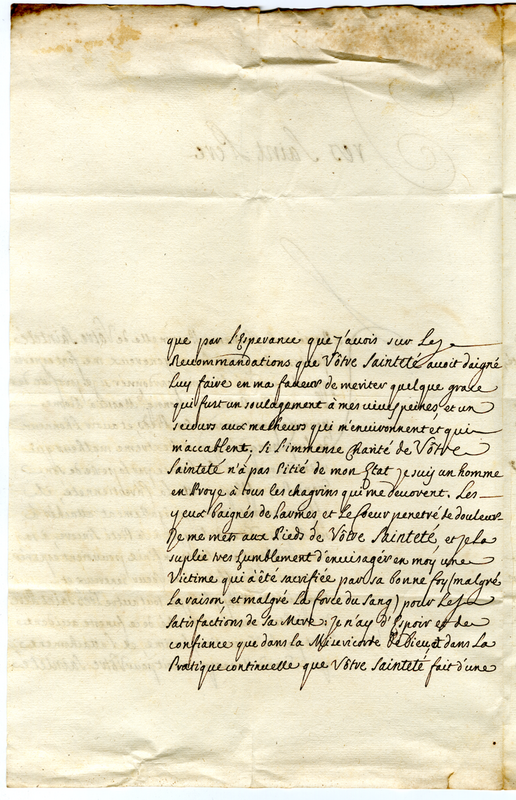 que par l'Esperance que j'avois sur Les
Recommandations que Vôtre Sainteté avoit daigné
Luy faire en ma faueur de meriter quelque grace
qui fust un soulagement à mes viues peines et un
secours aux malheurs qui m'environnent et qui
m'accablent. Si l'immense Charité de Vôtre
Sainteté n'à pas Pitié de mon Etat je suis un homme
en Proye à tous les chagrins qui me devorent. Les
yeux baignés de Larmes et le Coeur penetré de douleur
Je me mets aux Pieds de Vôtre Sainteté et je la
suplie tres humblement d'envisager en moy une
Victime qui à été sacrifiée par sa bonne foy (malgré
la raison, et malgré la force du Sang) pour Les
Satisfactions de sa Mere: je n'ay d'Espoir et de
confiance que dans la Misericorde de Dieu, et dans La
Pratique continuelle que Vôtre Sainteté fait d'une